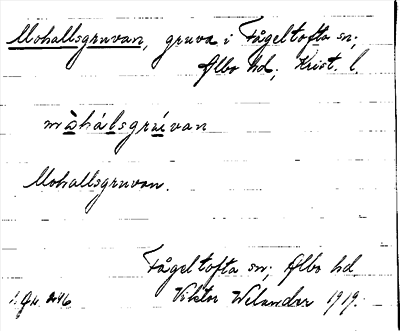 Mohallsgruvan, gruva i Fågeltofta sn;
Albo hd; Krist. l.
mòhálsgrúvan
Mohallsgruvan.
Fågeltofta sn; Albo hd
Viktor Welander 1919.